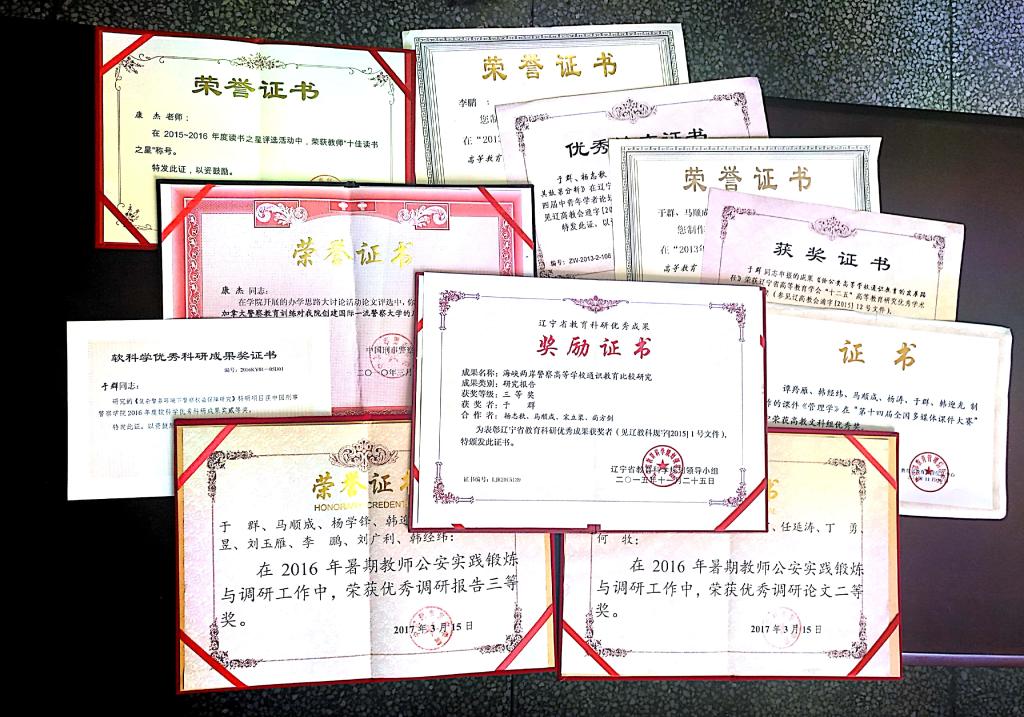 荣誉证书
康 杰 老师：
在 2015~2016 年度读书之星评选活动中，荣获教师“十佳读书
之星”称号。
特发此证，以资鼓励。
荣誉证书
李鹏 ：
在“2013
高等教育
证书
于群、杨志秋
四届中青年学者论
见辽高教会通字[20
特发此证。
编号：ZW-2013-2-106
荣誉证书
于群、马顺成
您制作
在“2013年
高等教育
获奖证书
荣誉证书
康 杰 同志：
在学院开展的办学思路大讨论活动论文评选中，你
加拿大警察教育训练对我院创建国际一流警察大学的
中国刑事警察
二〇一〇年三月
软科学优秀科研成果奖证书
于群同志：
警察学院2016年度软科学优秀科研成果奖贰等奖。
辽宁省教育科研优秀成果
奖励证书
成果名称：海峡两岸警察高等学校通识教育比较研究
成果类别：研究报告
获奖等级：三 等 奖
获 奖 者：于 群
合 作 者：杨志秋、马顺成、宋立军、尚方剑
为表彰辽宁省教育科研优秀成果获奖者（见辽教科规字[2015]1号文件），
特颁发此证书。
辽宁省教育科学规划领导小组
二〇一五年十一月二十五日
证 书
谭跨雁、韩经纬、马顺成、于群、韩迎光 制
的课件《管理学》在“第十四届全国多媒体课件大赛”
荣获高教文科组优秀奖。
荣誉证
于 群、马顺成、杨学锋、韩
昱、刘玉雁、李 鹏、刘广利、韩经纬：
在 2016 年暑期教师公安实践锻炼
与调研工作中，荣获优秀调研报告三等
奖。
2017年3月15日
书
任延涛、丁 勇、
何 牧：
在 2016 年暑期教师公安实践锻炼
与调研工作中，荣获优秀调研论文二等
奖。
2017年3月15日